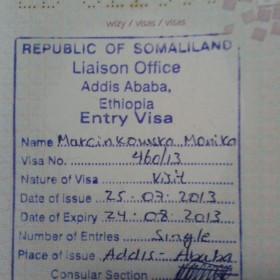 wizy / visas / visas
REPUBLIC OF SOMALILAND
Liaison Office
Addis Ababa,
Ethiopia
Entry Visa
Name Marcinkowska Monika
Visa No. 460/13
Nature of Visa Visit
Date of Issue 25.07.2013
Date of Expiry 24.08.2013
Number of Entries Single
Place of Issue Addis-Ababa
Consular Section